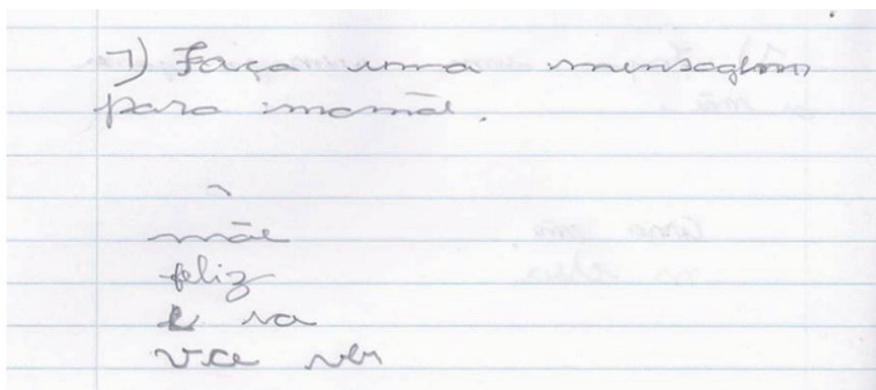 7) Faça uma mensagem
para mamãe.
mãe
feliz
e va
vce